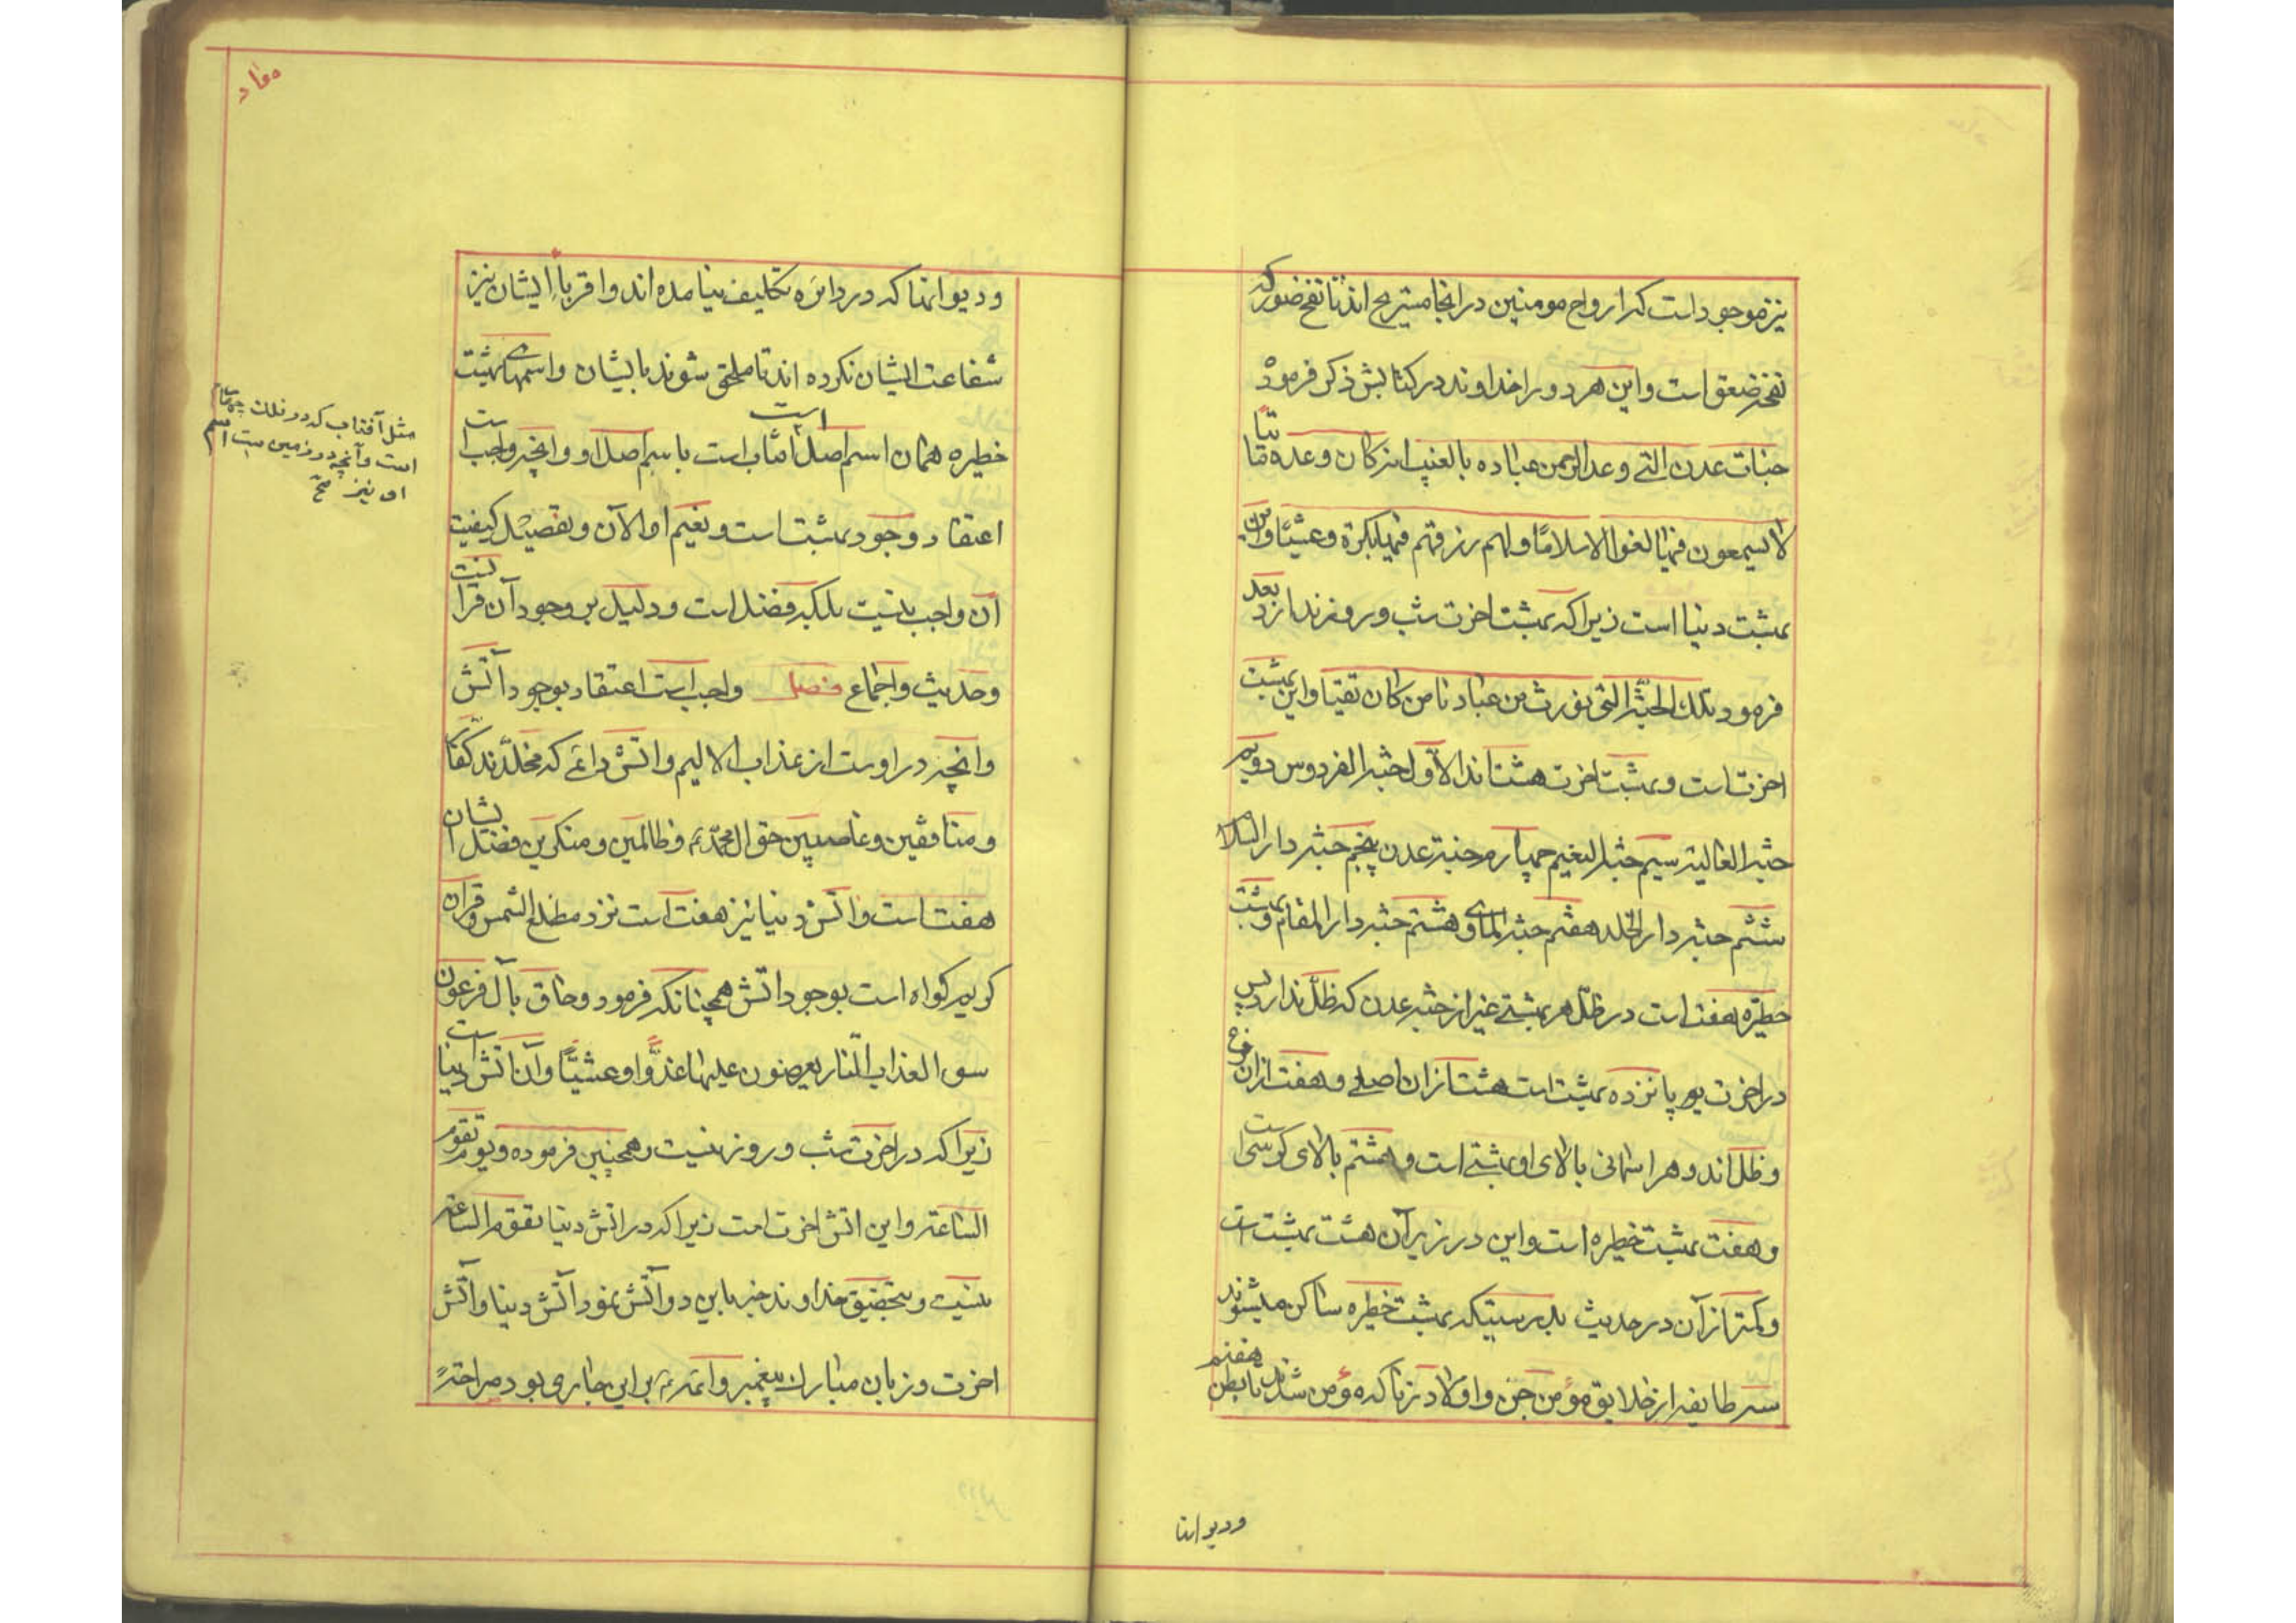 نیز موجود است که ارواح مومنین در انجا مستریح اند تا نفخ صور که
نفخهٔ ضعق است و این هر دو را خداوند در کتابش ذکر فرموده
جنات عدن التی وعد الرحمن عباده بالغیب انه کان وعده ماتیا
لا یسمعون فیها لغوا الا سلامًا و لهم رزقهم فیها بکرة و عشیًا و این
بهشت دنیا است زیرا که بهشت اخرت شب و روز ندارد بعد
فرمود تلک الجنة التی نورث من عبادنا من کان تقیا و این بهشت
اخرت است و بهشت اخرت هشت اند الأول جنة الفردوس دویم
جنة العالیة سیم جنة النعیم چهارم جنة عدن پنجم جنة دار السلام
ششم جنة دار الخلد هفتم جنة الماوی هشتم جنة دار المقام و بهشت
خطیره هفت است در ظل هر بهشتی غیر از جنة عدن که ظل ندارد پس
در اخرت پانزده بهشت است هشت ازان اصلی و هفت ازان فروع
و ظل اند و هر اسمانی بالای او بهشتی است و هشتم بالای کرسی است
و هفت بهشت خطیره است و این در زیر آن هشت بهشت است
و کمتر از آن در حدیث بدرستیکه بهشت خطیره ساکن میشوند
سه طایفه از خلایق مؤمن جن و اولاد زنا که مؤمن شدند تا بطن هفتم
و دیوانها
و دیوانها که در دائره تکلیف نیامده اند و اقرباء ایشان نیز
شفاعت ایشان نکرده اند تا ملحق شوند بایشان و اسمهای بهشت
خطیره همان اسم اصل است باسم اصل او و انچه واجب است
اعتقاد وجود بهشت است و نعیم او الآن و تفصیل کیفیت
آن واجب نیست بلکه فضل است و دلیل بر وجود آن قرآنیست
و حدیث و اجماع فصل واجب است اعتقاد بوجود آتش
و انچه در اوست از عذاب الالیم و اتش دائمی که مخلدند کفار
و منافقین و غاصبین حق ال محمد و ظالمین و منکرین فضل ایشان
هفت است و اتش دنیا نیز هفت است نزد مطلع الشمس و قران
کریم کواه است بوجود اتش همچنانکه فرمود و حاق بآل فرعون
سوء العذاب النار یعرضون علیها غدوًّا و عشیًّا و آن اتش دنیا است
زیرا که در اخرت شب و روز نیست و همچنین فرموده و یوم تقوم
الساعة و این اتش اخرت است زیرا که در اتش دنیا تقوم الساعة
نیست و بتحقیق خداوند خبر باین دو آتش نمود آتش دنیا و آتش
اخرت و زبان مبارک پیغمبر و ائمه بر این جاری بود صراحتً
مثل آفتاب که در فلک چهارم
است و آنچه در زمین است اسم
او نیز صح